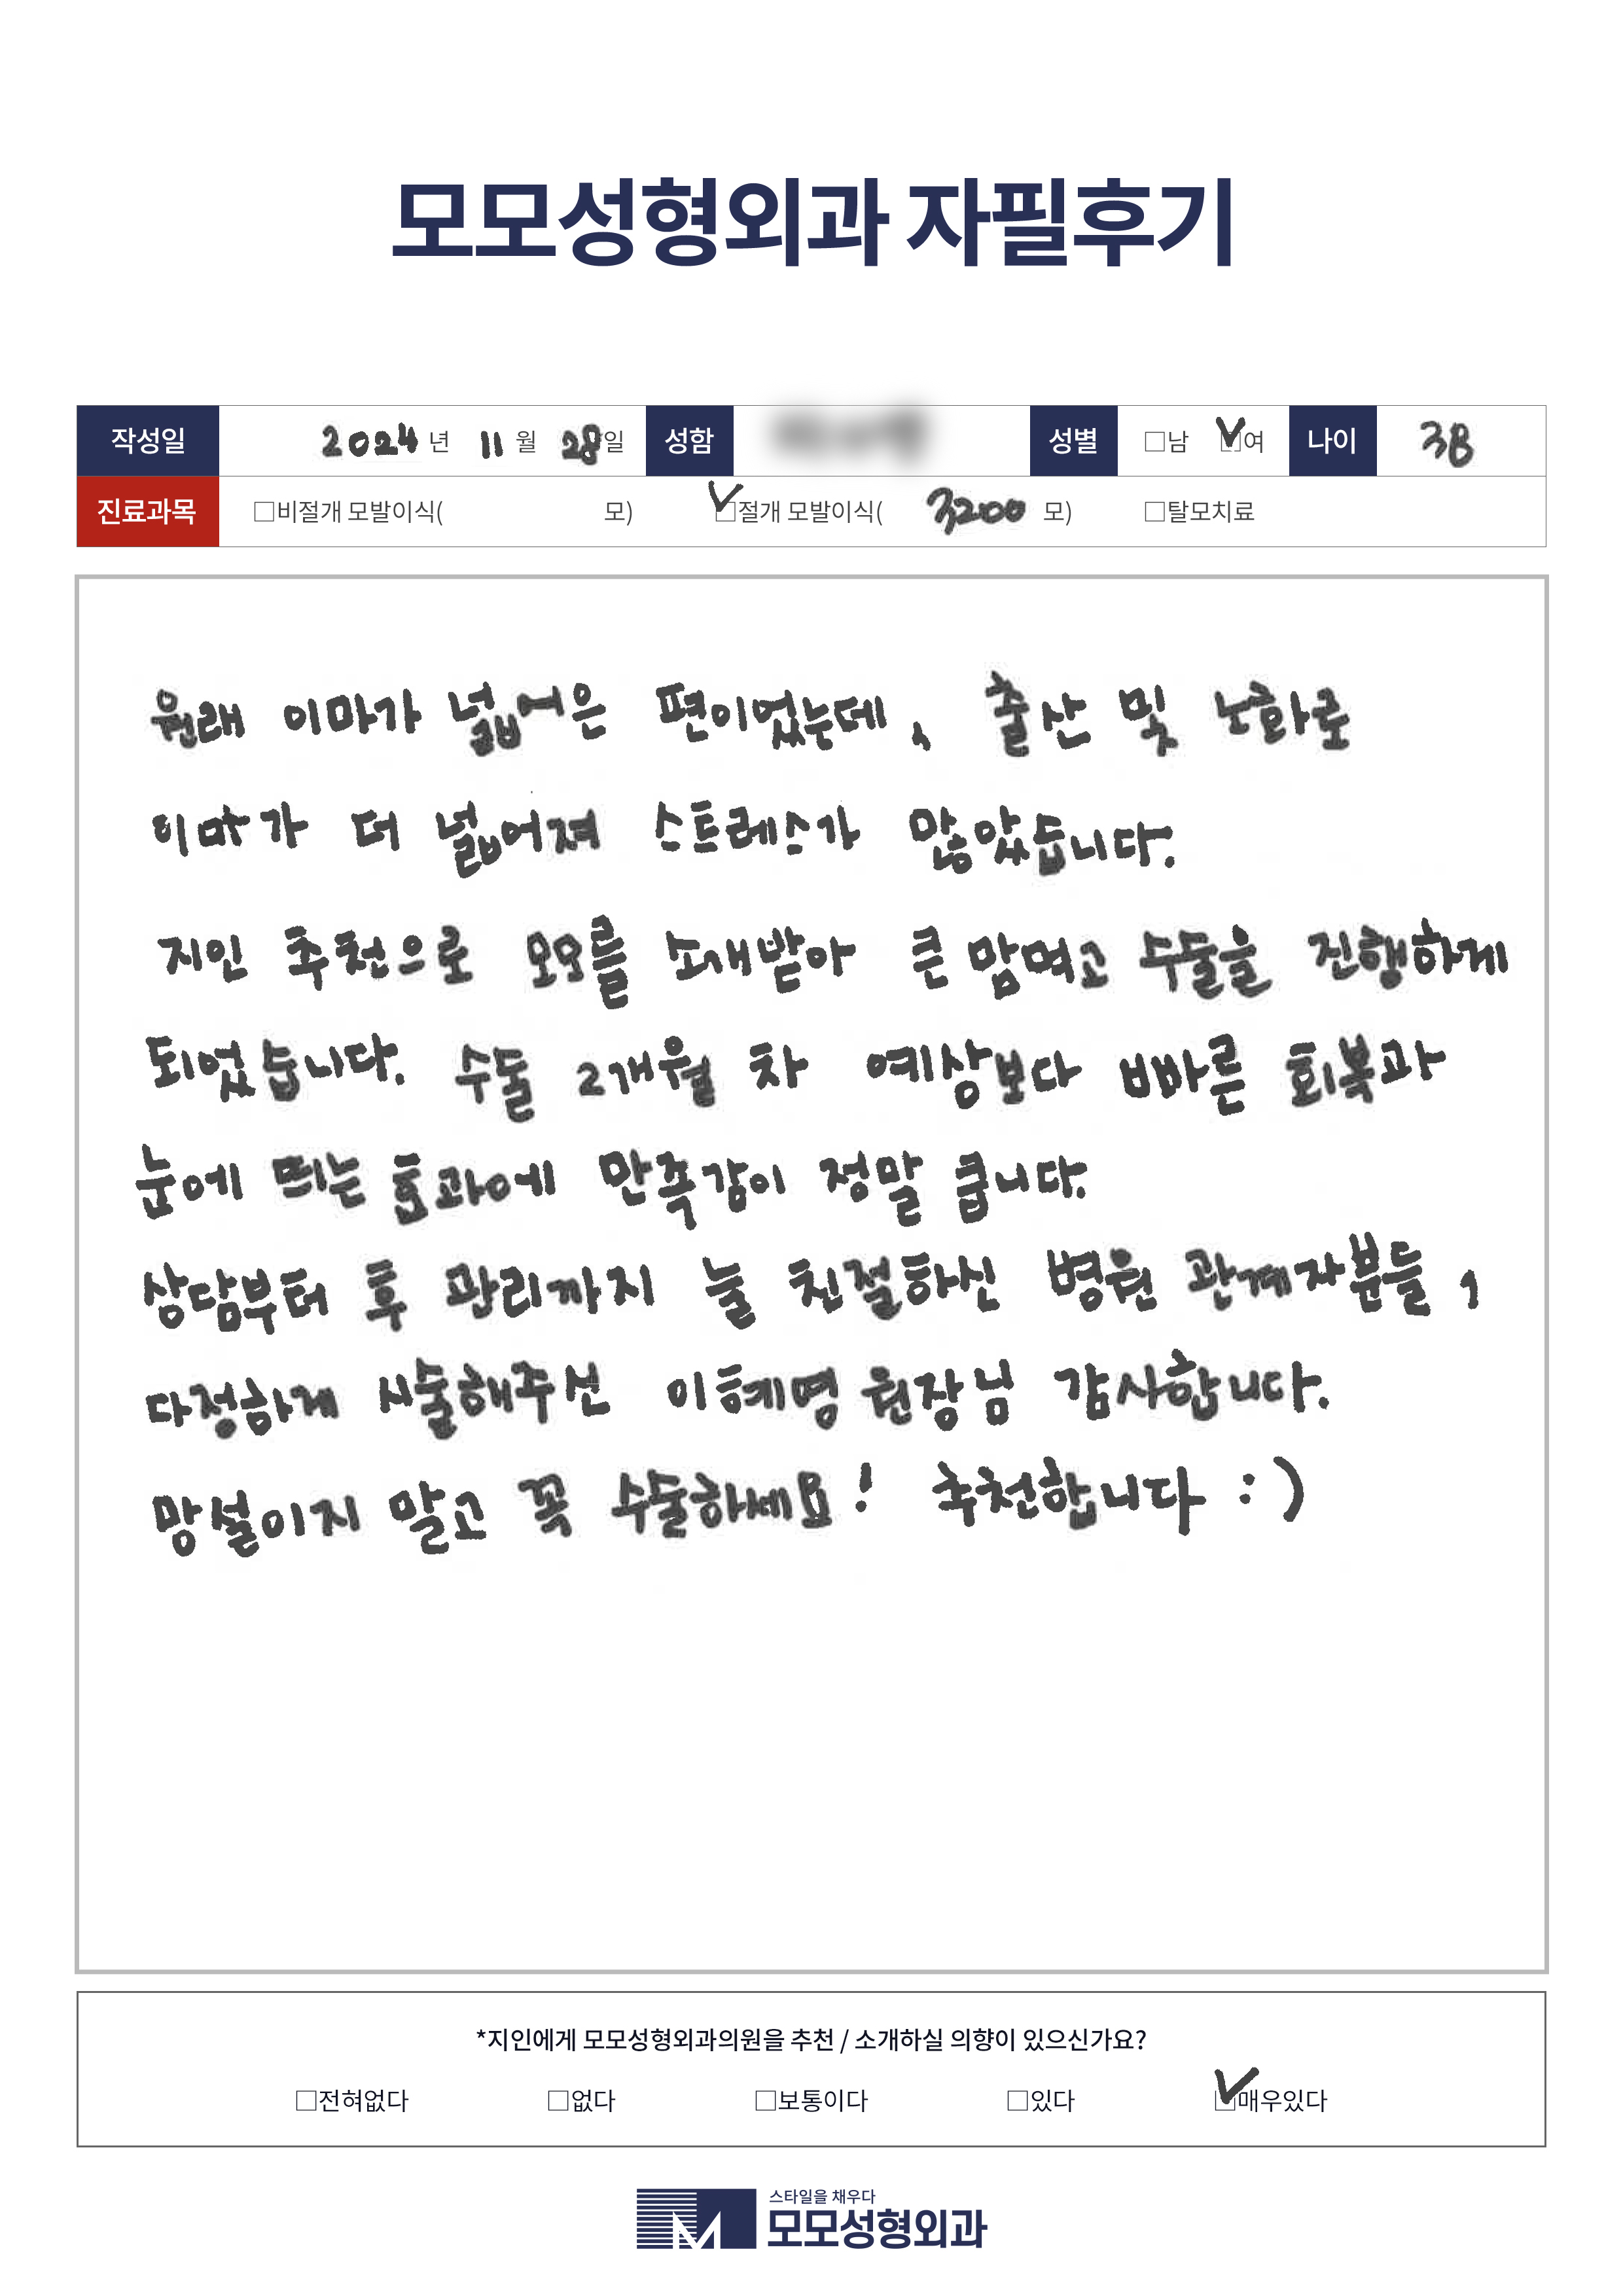 모모성형외과 자필후기
작성일 2024 년 11 월 28일 성함 성별 □남 ☑여 나이 38
진료과목 □비절개 모발이식( 모) ☑절개 모발이식( 3200 모) □탈모치료
원래 이마가 넓어은 편이었는데, 출산 및 노화로
이마가 더 넓어져 스트레스가 많았습니다.
지인 추천으로 모모를 소개받아 큰 맘먹고 수술을 진행하게
되었습니다. 수술 2개월 차 예상보다 빠른 회복과
눈에 띄는 효과에 만족감이 정말 큽니다.
상담부터 후 관리까지 늘 친절하신 병원 관계자분들,
다정하게 시술해주신 이혜영 원장님 감사합니다.
망설이지 말고 꼭 수술하세요! 추천합니다 :)
*지인에게 모모성형외과의원을 추천 / 소개하실 의향이 있으신가요?
□전혀없다 □없다 □보통이다 □있다 ☑매우있다
스타일을 채우다
모모성형외과